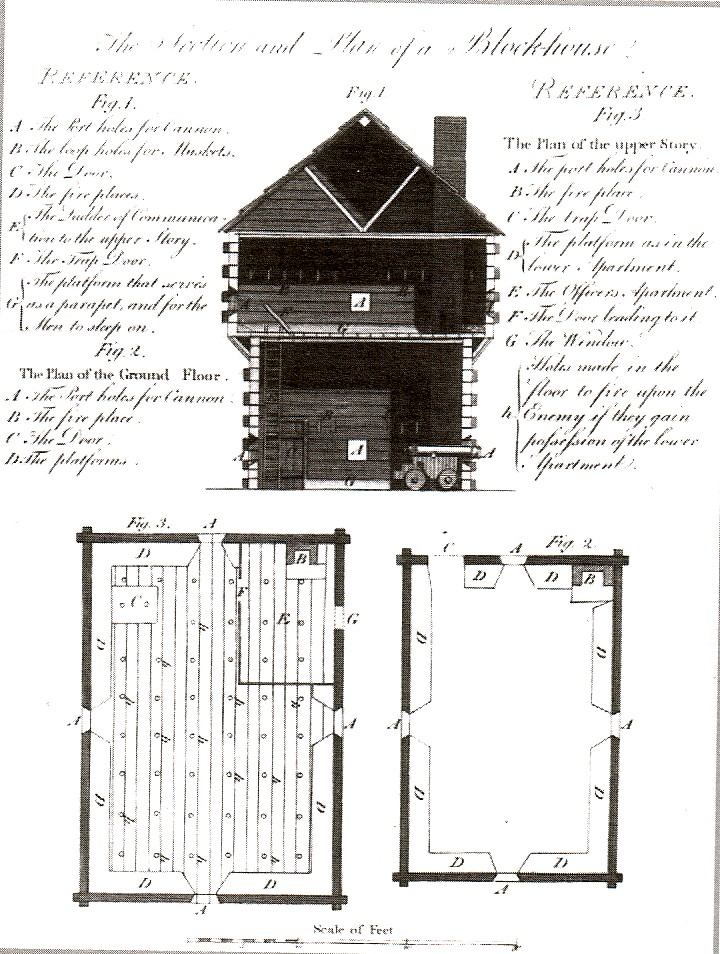 The Section and Plan of a Block-house.
REFERENCE.
Fig. 1.
A The Port holes for Cannon.
B The loop holes for Muskets.
C The Door.
D The fire places.
E The Ladder of Communica-
tion to the upper Story.
F The Trap Door.
G The platform that serves
as a parapet, and for the
Men to sleep on.
Fig. 2.
The Plan of the Ground Floor.
A The Port holes for Cannon.
B The fire place.
C The Door.
D The platforms.
Fig. 1
REFERENCE.
Fig. 3
The Plan of the upper Story.
A The port holes for Cannon.
B The fire place.
C The trap Door.
D The platform as in the
lower Apartment.
E The Officers Apartment.
F The Door leading to it
G The Window.
h Holes made in the
floor to fire upon the
Enemy if they gain
possession of the lower
Apartment.
A
G
B
A
A
A
G
Fig. 3.
A
D
B
C
F
E
G
h
D
h
h
h
h
h
A
A
h
h
h
h
D
h
h
h
D
D
D
A
Fig. 2
C
A
D
D
B
D
D
A
A
D
D
D
D
A
Scale of Feet